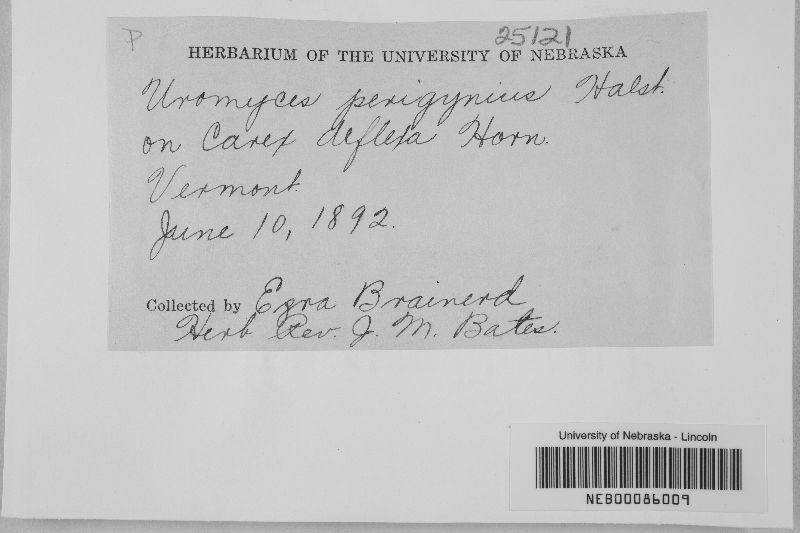 P
25121
HERBARIUM OF THE UNIVERSITY OF NEBRASKA
Uromyces perigynius Halst.
on Carex deflexa Horn.
Vermont.
June 10, 1892.
Collected by Ezra Brainerd
Herb Rev. J. M. Bates.
University of Nebraska - Lincoln
NEB00086009